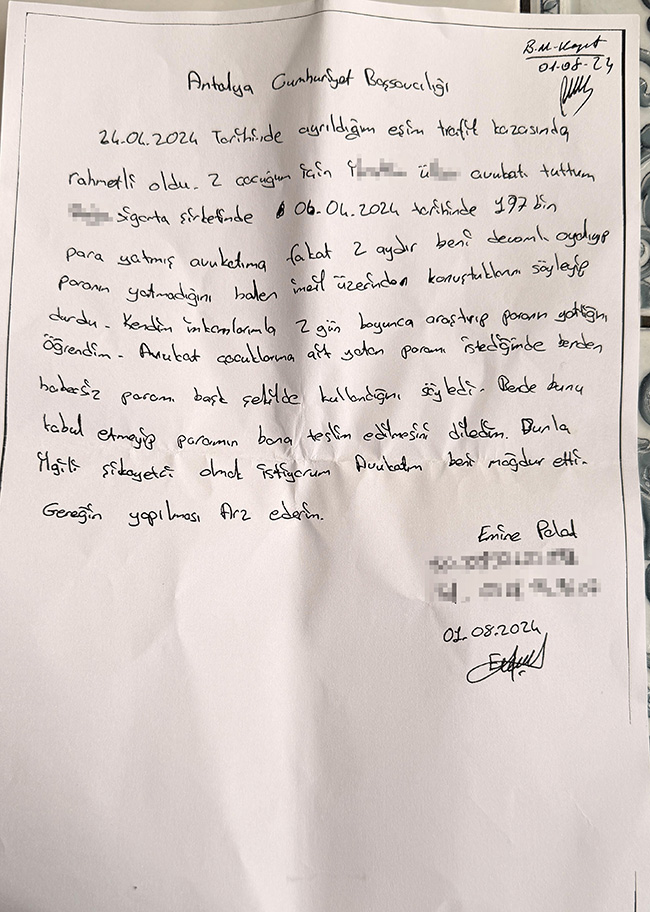 B.M-Kayıt
01-08-24
Antalya Cumhuriyet Başsavcılığı
24.04.2024 Tarihinde ayrıldığım eşim trafik kazasında
rahmetli oldu. 2 çocuğum için avukatı tuttum
sigorta şirketinde 06.04.2024 tarihinde 197 bin
para yatmış avukatıma fakat 2 aydır beni devamlı oyalayıp
paranın yatmadığını halen mail üzerinden konuştuklarını söyleyip
durdu. Kendim imkanlarımla 2 gün boyunca araştırıp paranın yattığını
öğrendim. Avukat çocuklarıma ait yatan paramı istediğimde benden
habersiz paramı başk şekilde kullandığını söyledi. Bende bunu
kabul etmeyip paramın bana teslim edilmesini diledim. Bunla
ilgili şikayetçi olmak istiyorum Avukatım beni mağdur etti.
Gereğin yapılması Arz ederim.
Emine Polat
01.08.2024